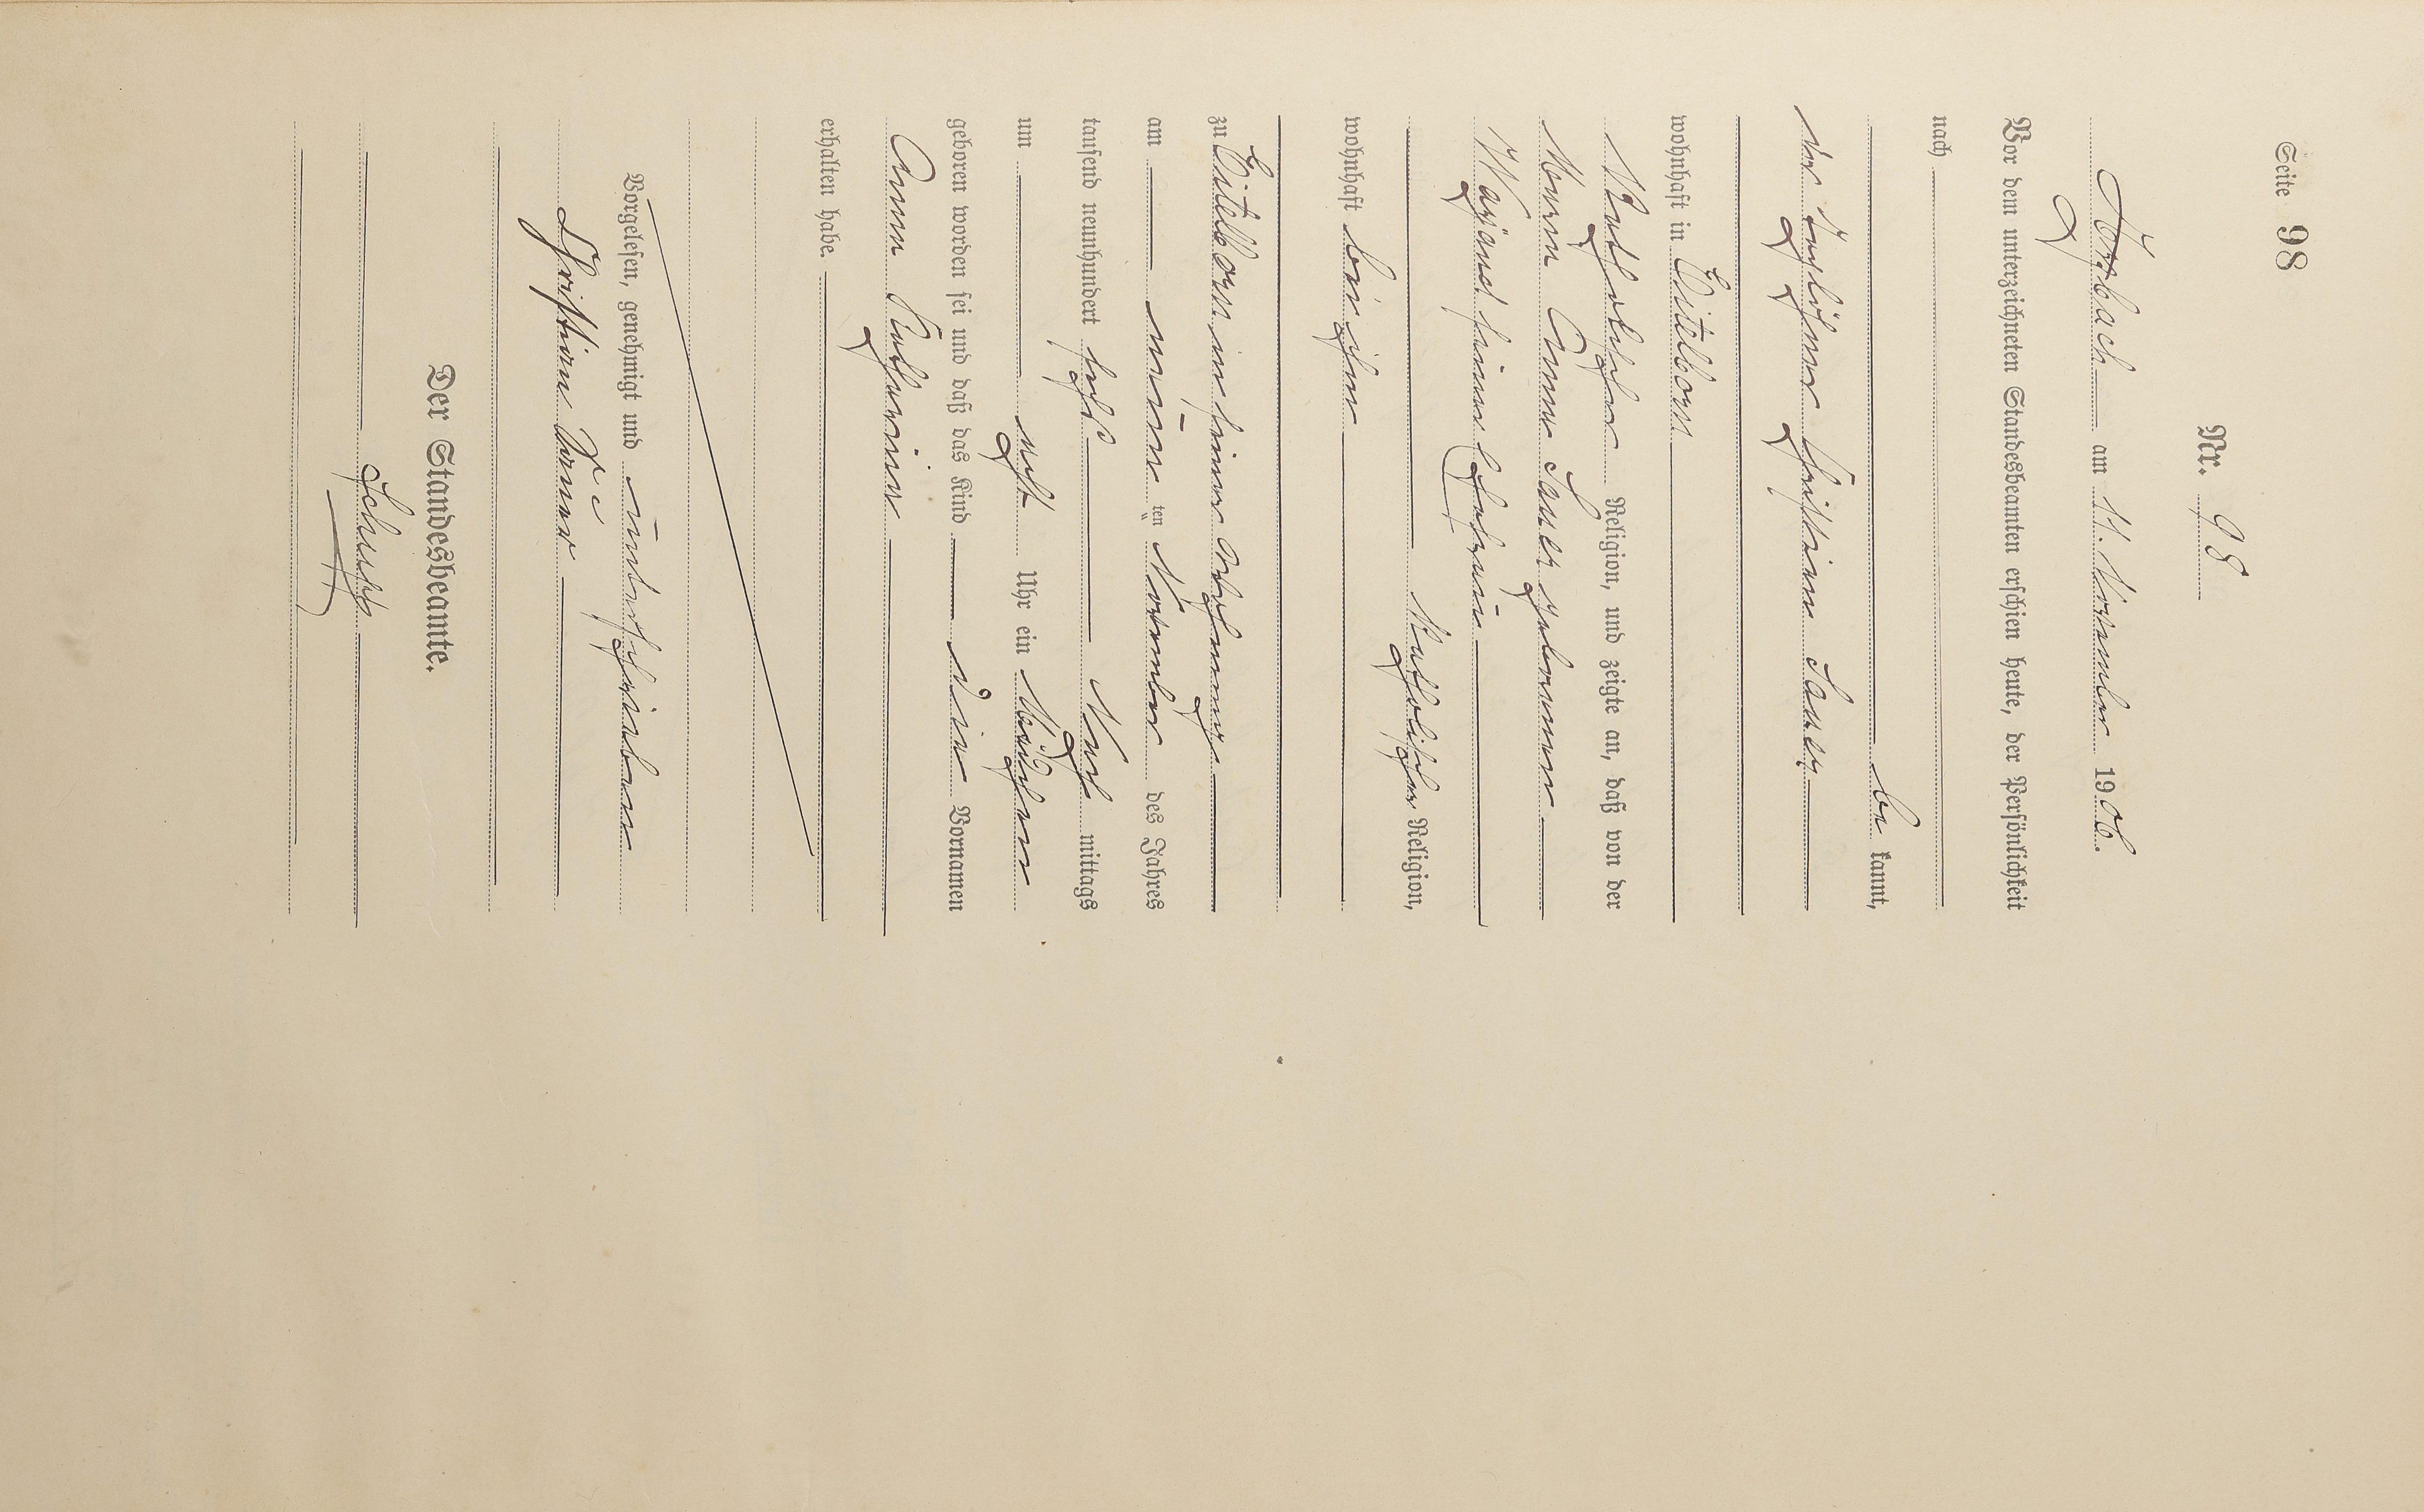 Seite 98
Nr. 98
Arzbach am 11. November 1906.
Vor dem unterzeichneten Standesbeamten erschien heute, der Persönlichkeit
nach
be kannt,
der Taglöhner Christian Sauer
wohnhaft in Eitelborn
Katholischer Religion, und zeigte an, daß von der
Maria Anna Sauer geborenen
Wayand seiner Ehefrau
Katholischer Religion,
wohnhaft bei ihm
zu Eitelborn in seiner Wohnung
am neun ten November des Jahres
tausend neunhundert sechs Nach mittags
um acht Uhr ein Mädchen
geboren worden sei und daß das Kind die Vornamen
Anna Katharina
erhalten habe.
Vorgelesen, genehmigt und unterschrieben
Christian
Der Standesbeamte.
Schupp